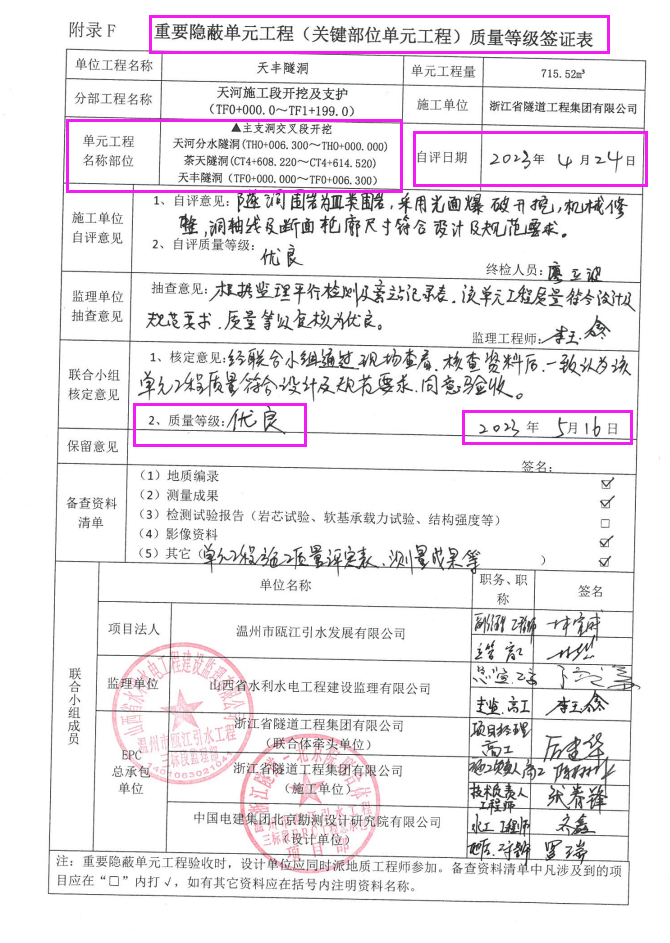 附录 F 重要隐蔽单元工程（关键部位单元工程）质量等级签证表
单位工程名称 天丰隧洞 单元工程量 715.52m³
分部工程名称 天河施工段开挖及支护
（TF0+000.0～TF1+199.0） 施工单位 浙江省隧道工程集团有限公司
单元工程
名称部位
▲主支洞交叉段开挖
天河分水隧洞（TH0+006.300～TH0+000.000）
茶天隧洞（CT4+608.220～CT4+614.520）
天丰隧洞（TF0+000.000～TF0+006.300）
自评日期 2023年 4月24日
施工单位
自评意见
1、自评意见：隧洞围岩为Ⅲ类围岩，采用光面爆破开挖，机械修
整，洞轴线及断面轮廓尺寸符合设计及规范要求。
2、自评质量等级：
优良
终检人员：
监理单位
抽查意见
抽查意见：根据监理平行检测及旁站记录表，该单元工程质量符合设计及
规范要求，质量等级复核为优良。
监理工程师：
联合小组
核定意见
1、核定意见：经联合小组通过现场查看，核查资料后，一致认为该
单元工程质量符合设计及规范要求，同意验收。
2、质量等级：优良 2023年 5月16日
保留意见
签名：
备查资料
清单
（1）地质编录 ☑
（2）测量成果 ☑
（3）检测试验报告（岩芯试验、软基承载力试验、结构强度等） □
（4）影像资料 ☑
（5）其它（单元工程施工质量评定表、测量成果等 ） ☑
联合小组成员
单位名称 职务、职称 签名
项目法人 温州市瓯江引水发展有限公司
监理单位 山西省水利水电工程建设监理有限公司
EPC
总承包
单位
浙江省隧道工程集团有限公司
（联合体牵头单位） 项目经理
高工
浙江省隧道工程集团有限公司
（施工单位） 技术负责人
工程师
中国电建集团北京勘测设计研究院有限公司
（设计单位） 水工 工程师
山西省水利水电工程建设监理有限公司
温州市瓯江引水工程
三标段监理部
注：重要隐蔽单元工程验收时，设计单位应同时派地质工程师参加。备查资料清单中凡涉及到的项
目应在“□”内打√，如有其它资料应在括号内注明资料名称。